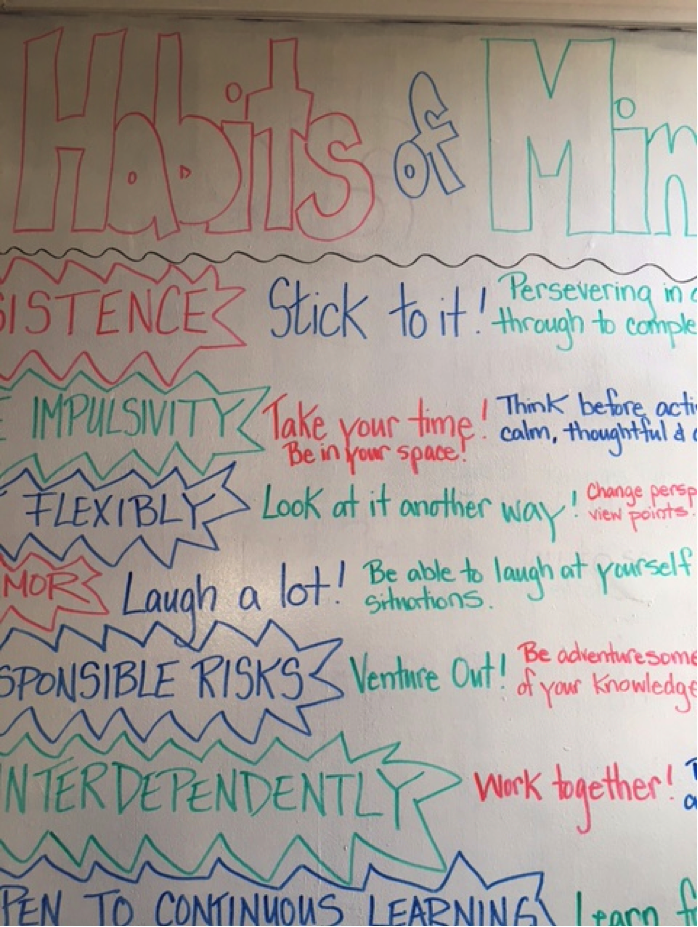 Habits of Min
SISTENCE Stick to it! Persevering in
through to comple
E IMPULSIVITY Take your time! Think before acti
Be in your space! calm, thoughtful &
FLEXIBLY Look at it another way! Change persp
view points.
MOR Laugh a lot! Be able to laugh at yourself
situations.
SPONSIBLE RISKS Venture Out! Be adventuresome
of your knowledge
NTERDEPENDENTLY Work together!
PEN TO CONTINUOUS LEARNING Learn f